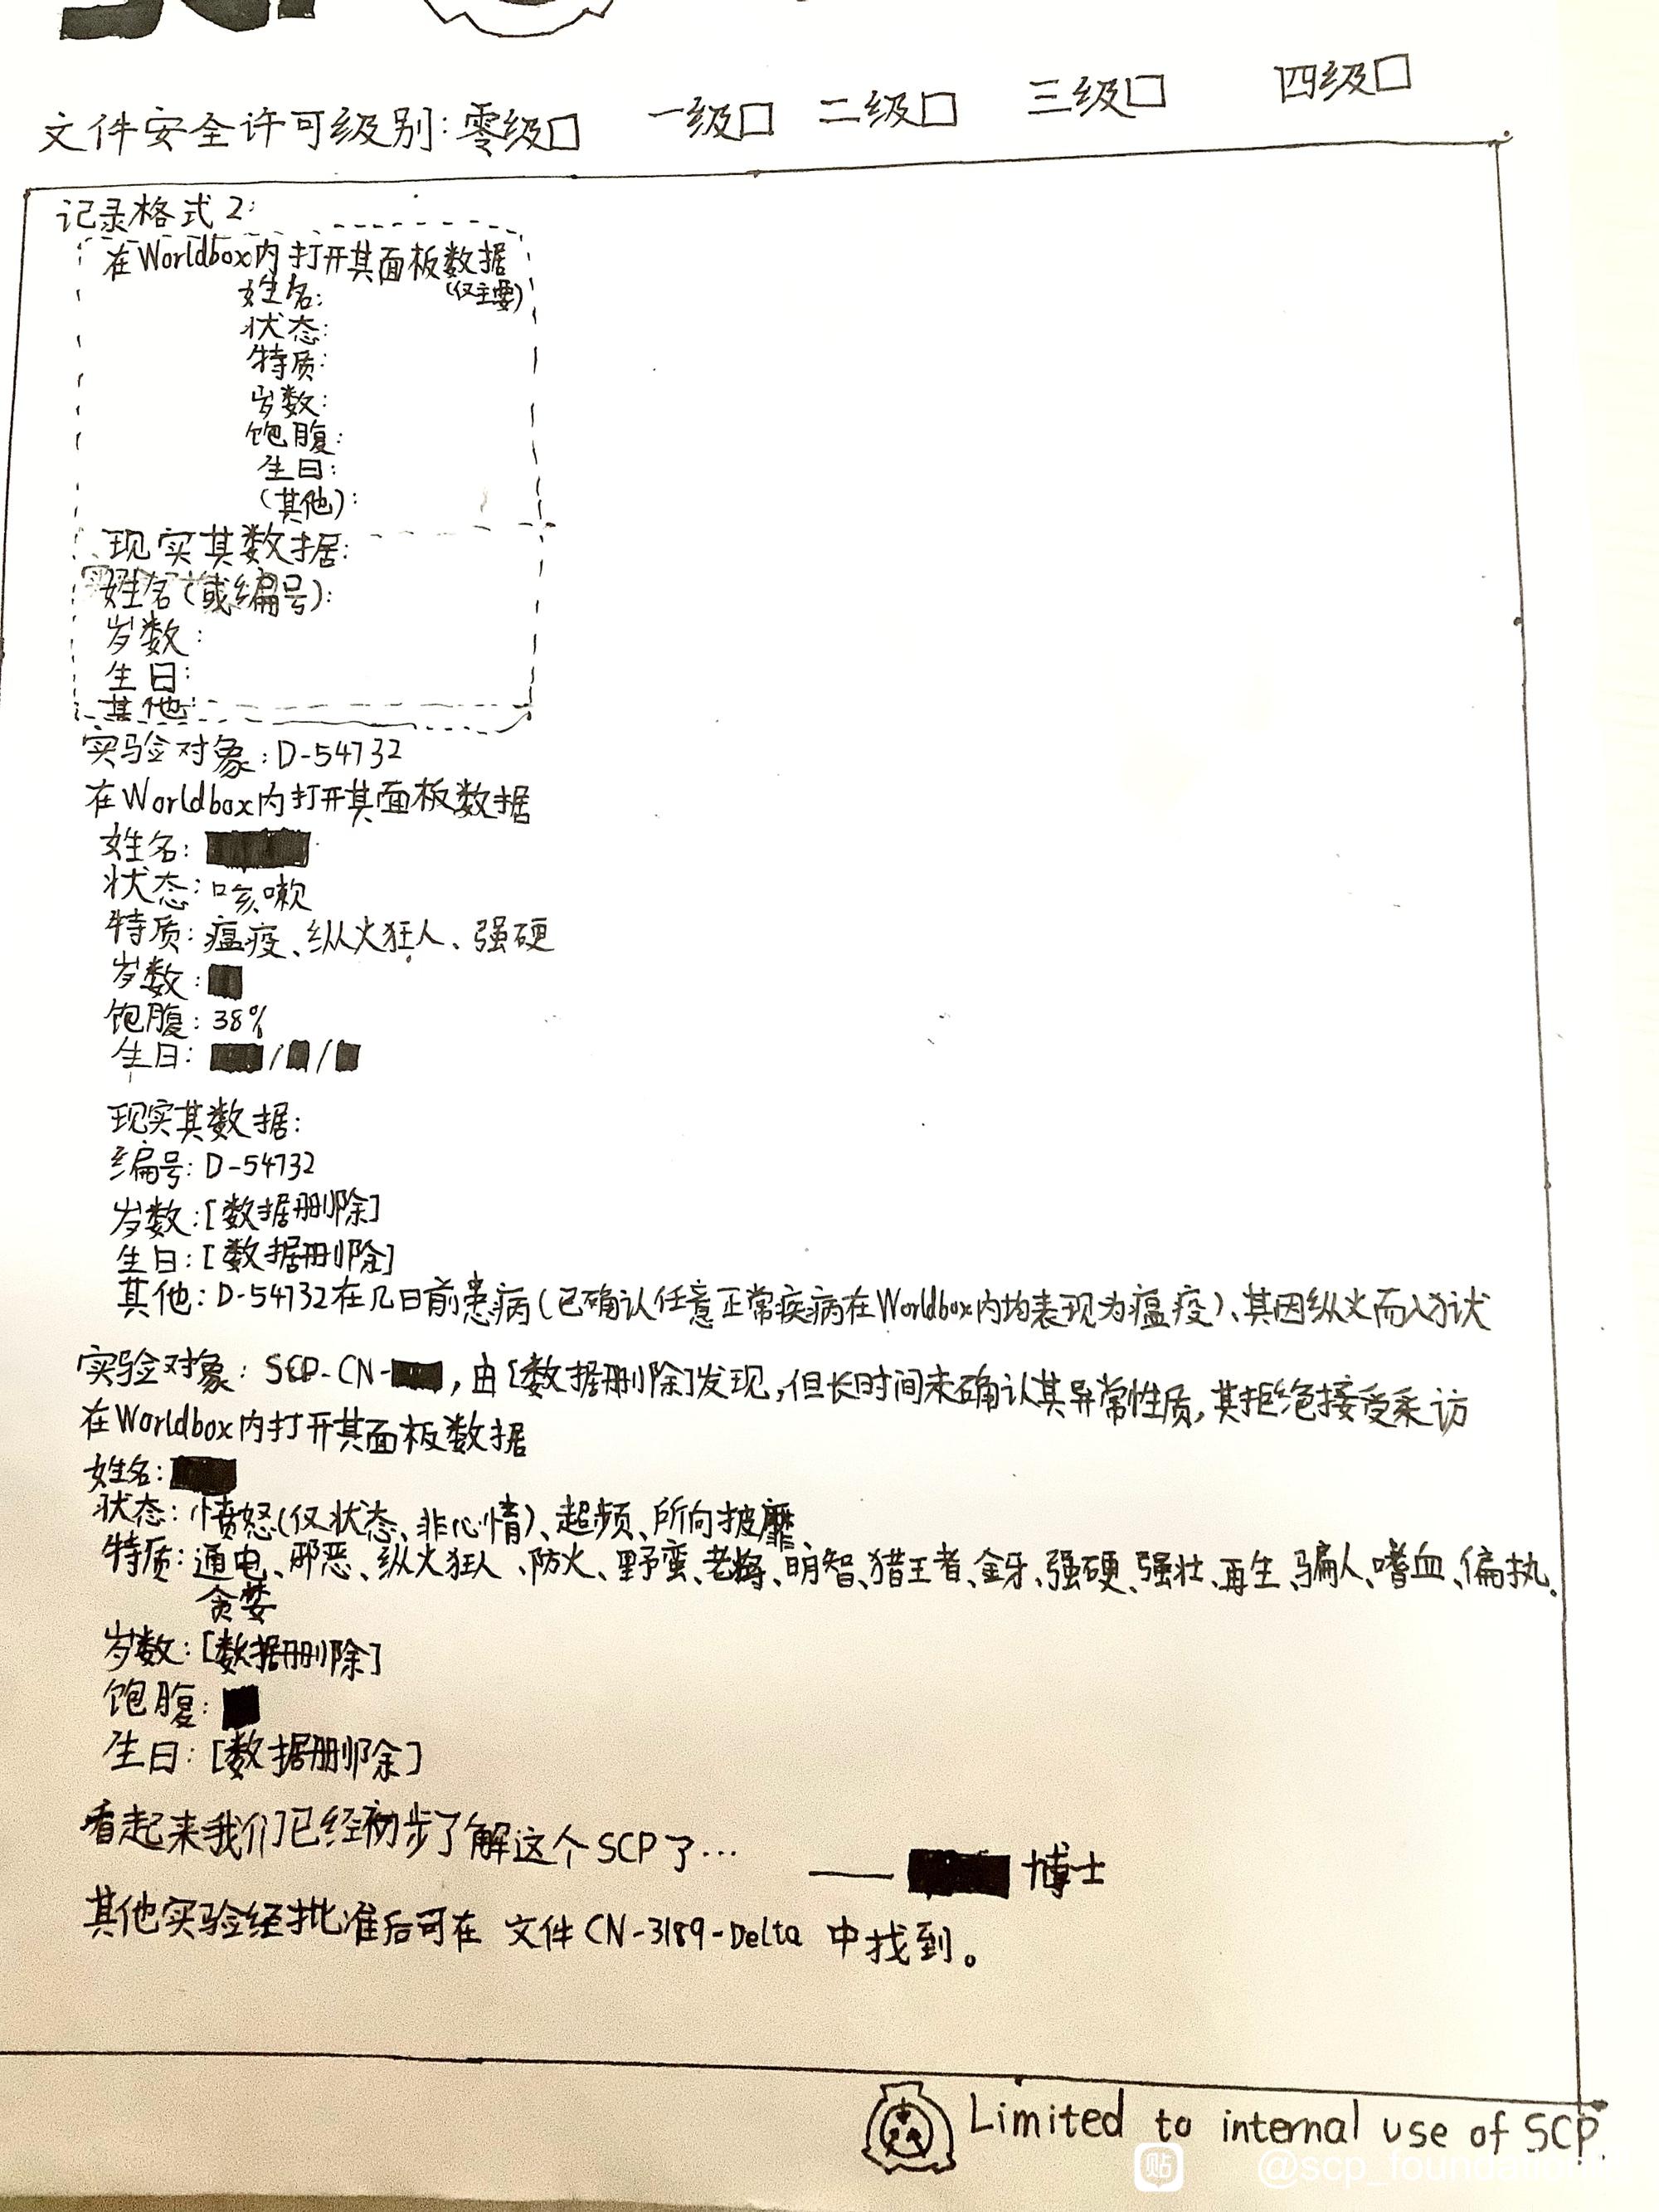 文件安全许可级别:零级□ 一级□ 二级□ 三级□ 四级□
记录格式2:
在Worldbox内打开其面板数据
(仅主要)
姓名:
状态:
特质:
岁数:
饱腹:
生日:
(其他):
现实其数据:
姓名(或编号):
岁数:
生日:
其他:
实验对象:D-54732
在Worldbox内打开其面板数据
姓名:
状态:咳嗽
特质:瘟疫、纵火狂人、强硬
岁数:
饱腹:38%
生日: / /
现实其数据:
编号:D-54732
岁数:[数据删除]
生日:[数据删除]
其他:D-54732在几日前患病(已确认任意正常疾病在Worldbox内均表现为瘟疫)、其因纵火而入狱
实验对象:SCP-CN- ,由[数据删除]发现,但长时间未确认其异常性质,其拒绝接受采访
在Worldbox内打开其面板数据
姓名:
状态:愤怒(仅状态、非心情)、超频、所向披靡
特质:通电、邪恶、纵火狂人、防火、野蛮、老将、明智、猎王者、金牙、强硬、强壮、再生、骗人、嗜血、偏执、
贪婪
岁数:[数据删除]
饱腹:
生日:[数据删除]
看起来我们已经初步了解这个SCP了…
—— 博士
其他实验经批准后可在 文件CN-3189-Delta 中找到。
Limited to internal use of SCP.
贴 @scp_foundation